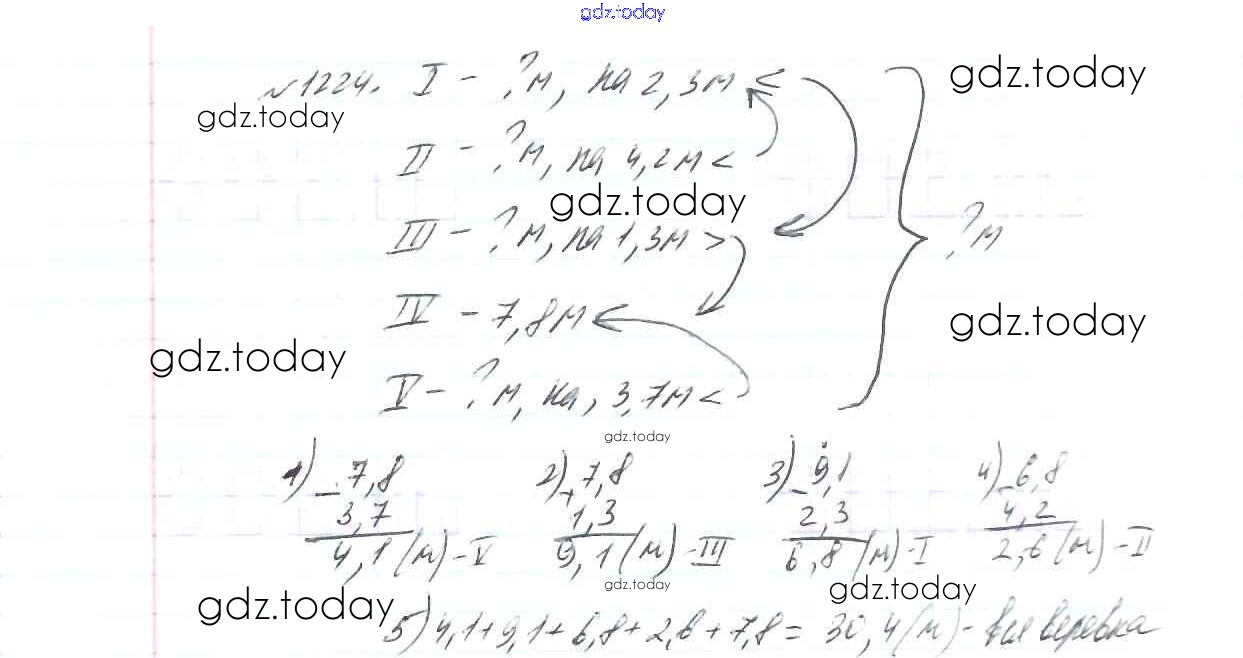 gdz.today
№1224. I - ?м, на 2,3м < gdz.today
gdz.today
II - ?м, на 4,2м <
gdz.today
III - ?м, на 1,3м > ?м
IV - 7,8м gdz.today
gdz.today
V - ?м, на, 3,7м <
gdz.today
1) 7,8 2) 7,8 3) 9,1 4) 6,8
- 3,7 + 1,3 - 2,3 - 4,2
4,1(м) - V 9,1(м) - III 6,8(м) - I 2,6(м) - II
gdz.today gdz.today gdz.today
5) 4,1+9,1+6,8+2,6+7,8= 30,4(м) - вся веревка